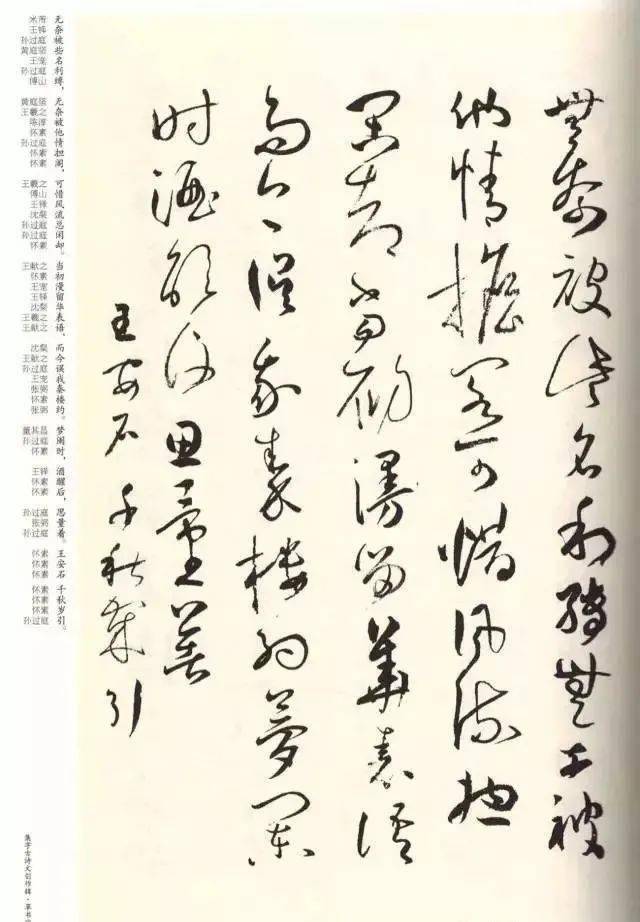 無奈被些名利縛無奈被
他情擔閣可惜風流總
閒却當初漫留華表語
而今誤我秦樓約夢闌
时酒醒後思量著
王安石千秋歲引
米芾 无
王铎 奈
孙过庭 被
黄庭坚 些
王宠 名
孙过庭 利
傅山 缚，
黄庭坚 无
王羲之 奈
陈淳 被
怀素 他
孙过庭 情
怀素 担
怀素 阁，
王羲之 可
傅山 惜
王铎 风
沈粲 流
孙过庭 总
孙过庭 闲
怀素 却。
王献之 当
怀素 初
王宠 漫
王铎 留
沈粲 华
王羲之 表
王献之 语，
沈粲 而
王献之 今
孙过庭 误
王宠 我
张弼 秦
怀素 楼
张弼 约。
董其昌 梦
孙过庭 阑
怀素 时，
王铎 酒
怀素 醒
怀素 后，
孙过庭 思
张弼 量
孙过庭 着。
怀素 王
怀素 安
怀素 石
怀素 千
怀素 秋
怀素 岁
孙过庭 引。
集字古诗文创作辑·草书